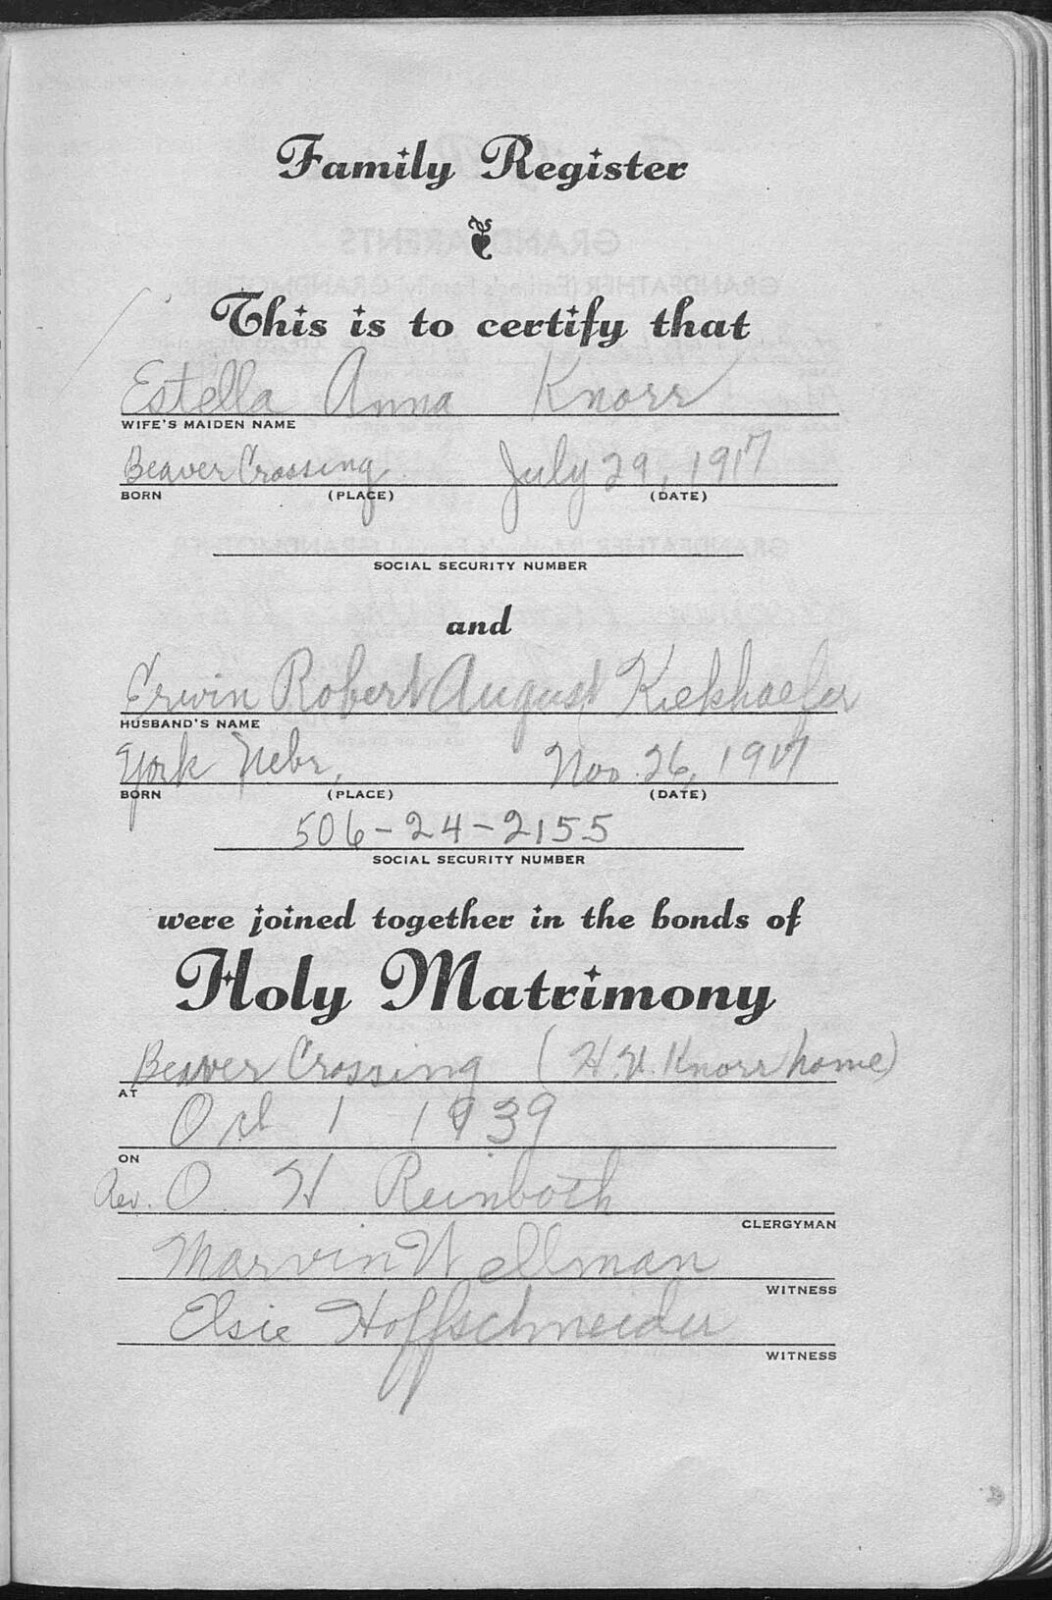 Family Register
This is to certify that
Estella Anna Knorr
WIFE'S MAIDEN NAME
Beaver Crossing July 29, 1917
BORN (PLACE) (DATE)
SOCIAL SECURITY NUMBER
and
Erwin Robert August Kiekhaefer
HUSBAND'S NAME
York Nebr. Nov. 26, 1917
BORN (PLACE) (DATE)
506-24-2155
SOCIAL SECURITY NUMBER
were joined together in the bonds of
Holy Matrimony
Beaver Crossing (H. Knorr home)
AT
Oct 1 1939
ON
Rev. O H Reinboth
CLERGYMAN
Marvin Wellman
WITNESS
Elsie Hoffschneider
WITNESS